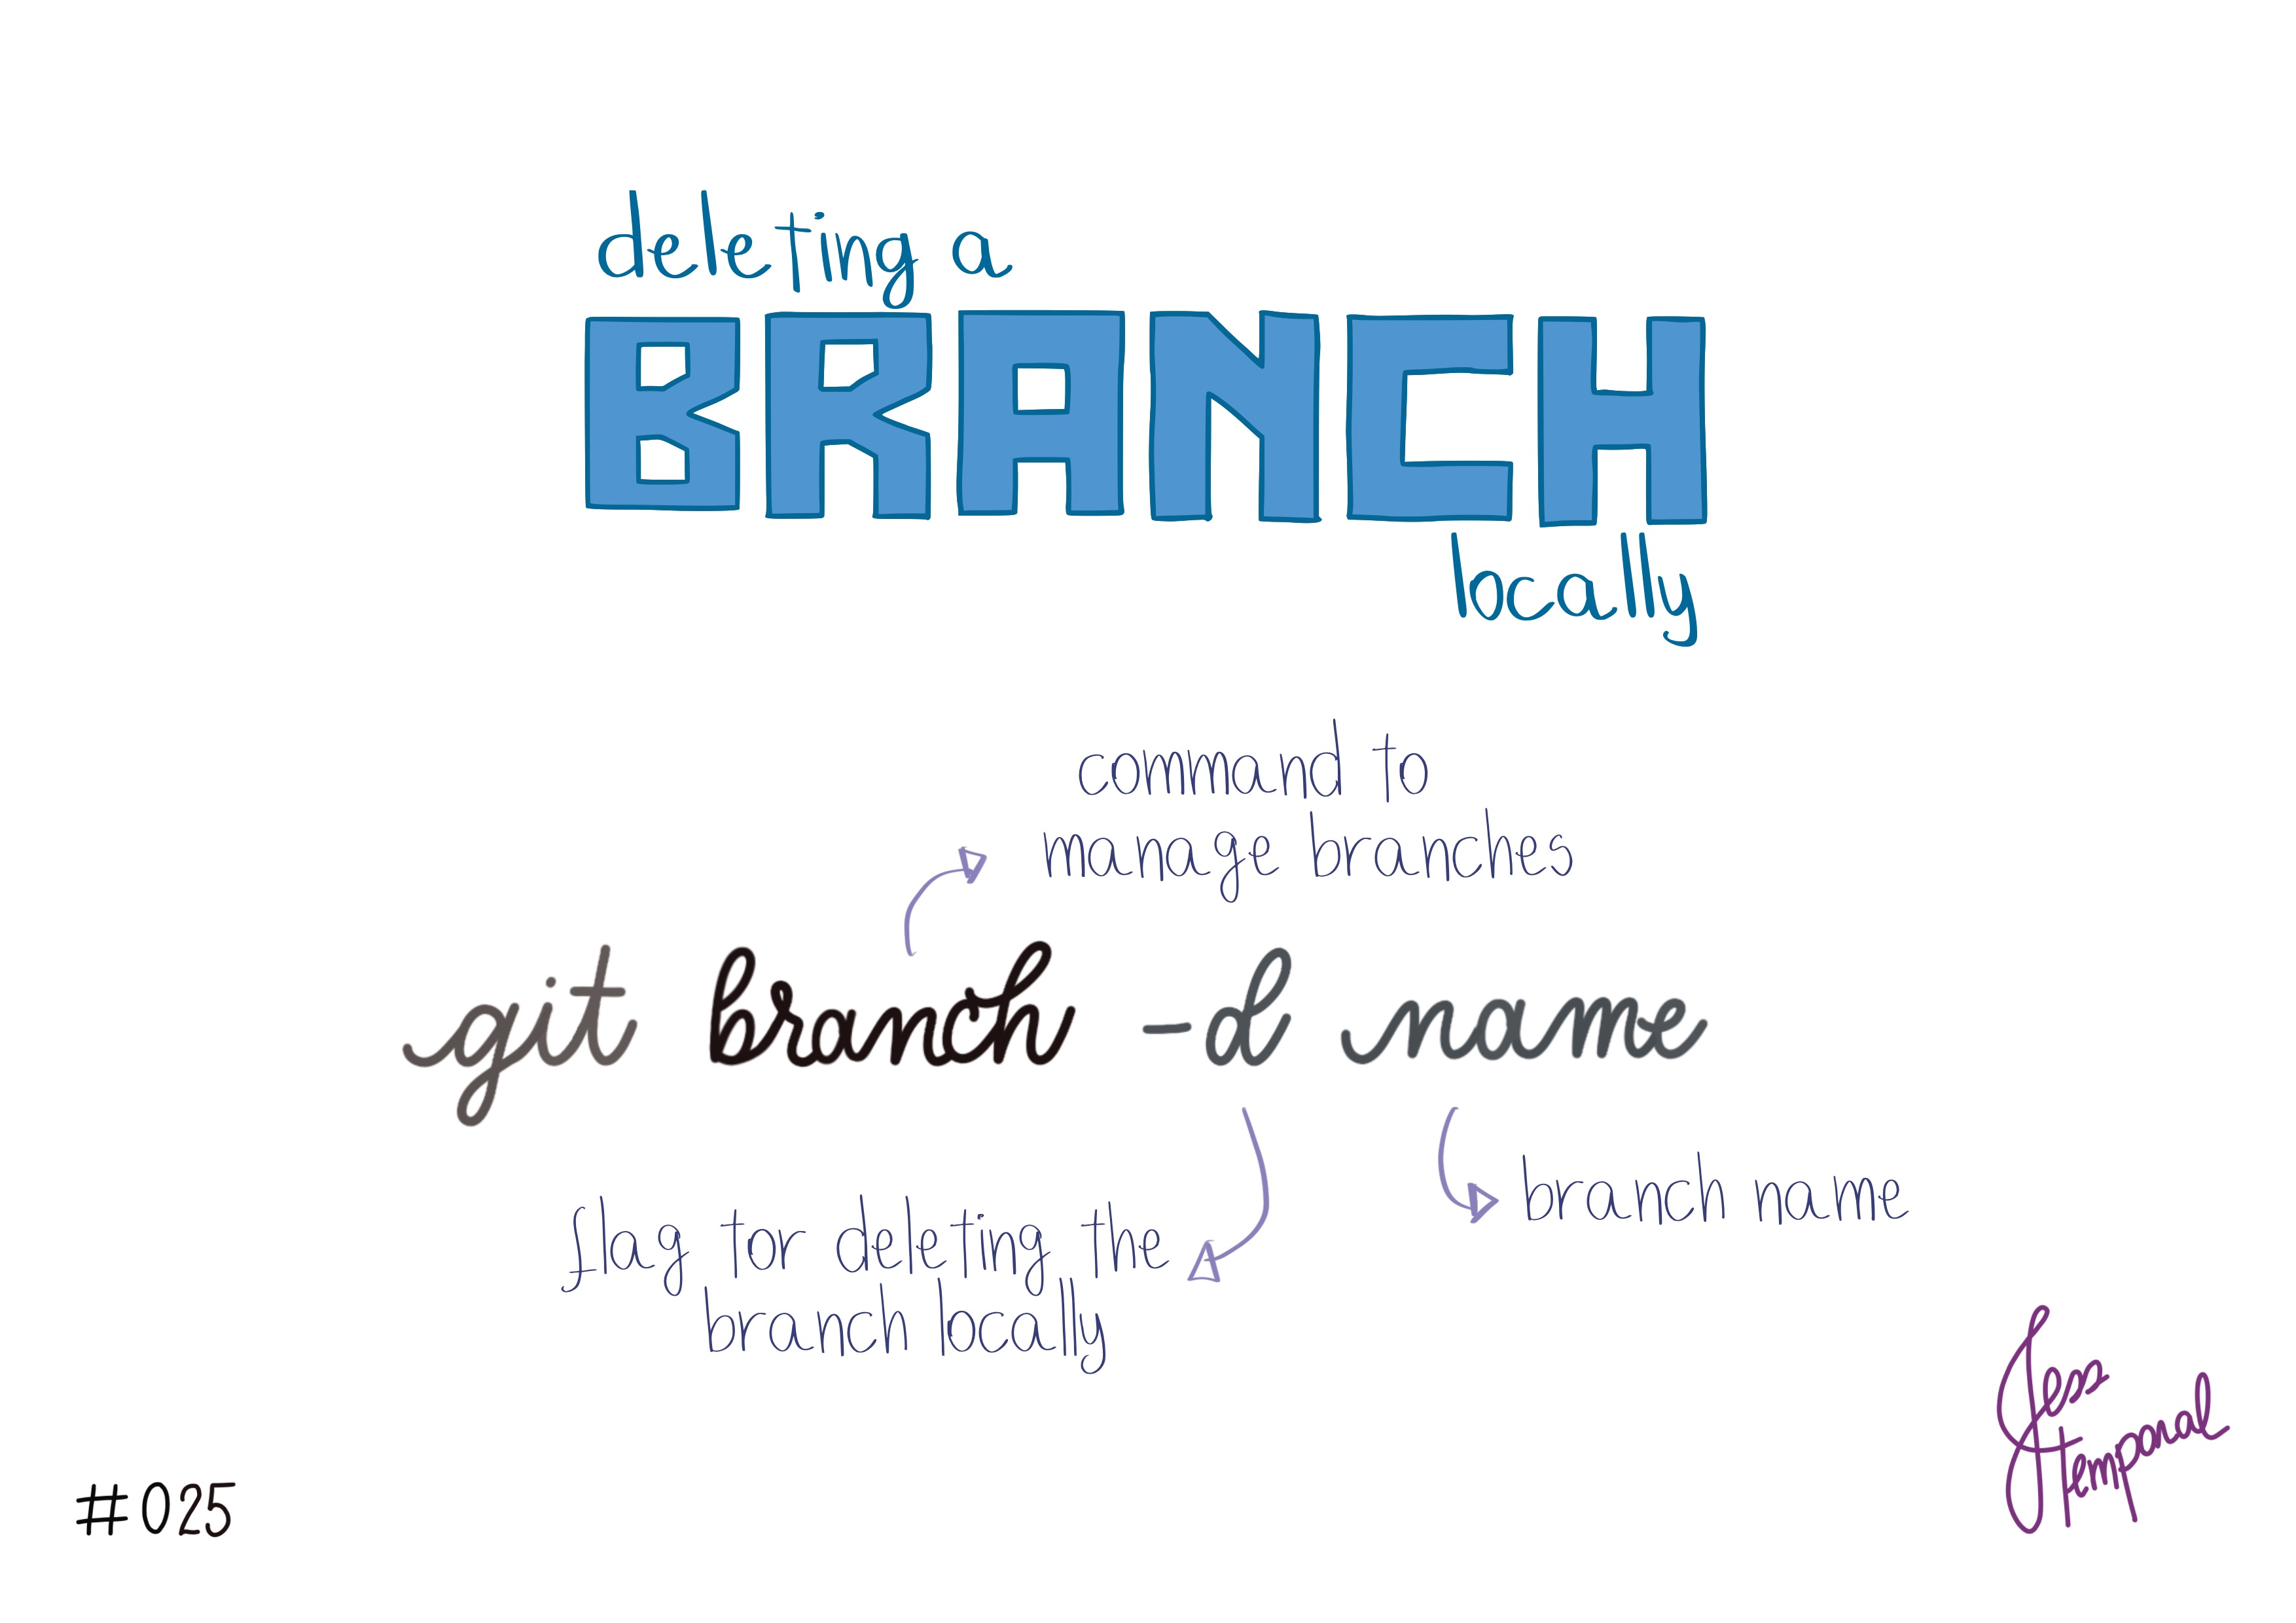 deleting a
BRANCH
locally
command to
manage branches
git branch -d name
branch name
flag for deleting the
branch locally
#025
Jess
temporal